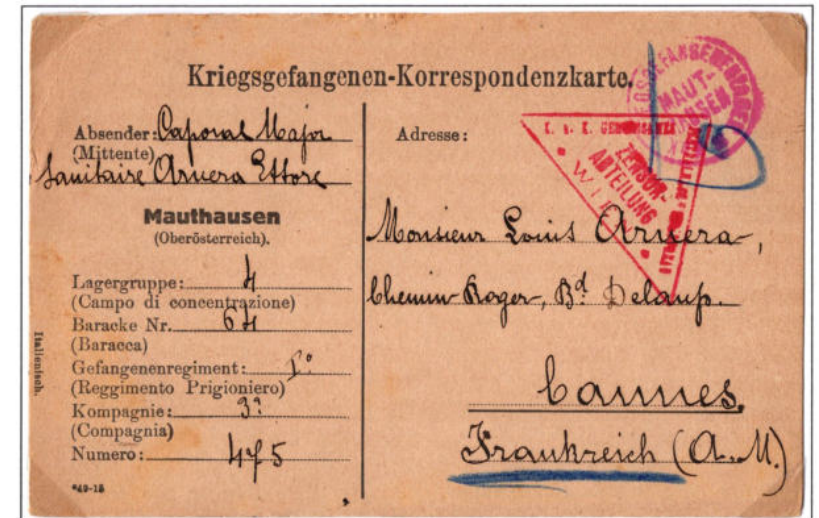 Kriegsgefangenen-Korrespondenzkarte.
Absender: Caporal Major
(Mittente)
Sanitaire Arnera Ettore
Mauthausen
(Oberösterreich).
Lagergruppe: 4
(Campo di concentrazione)
Baracke Nr. 64
(Baracca)
Gefangenenregiment: I°
(Reggimento Prigioniero)
Kompagnie: 3ª
(Compagnia)
Numero: 475
*49-15
Italienisch.
Adresse:
Monsieur Louis Arnera,
Chemin Roger, Bd Delaup.
Cannes,
Frankreich (A. M.)
MAUT-
HAUSEN
K. u. K.
ZENSUR-
ABTEILUNG
WIEN